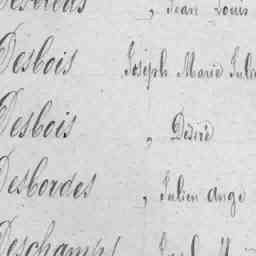 , Jean Louis
Desbois Joseph Marie Juli
Desbois , Désiré
Desbordes , Julien Ange
Deschamps